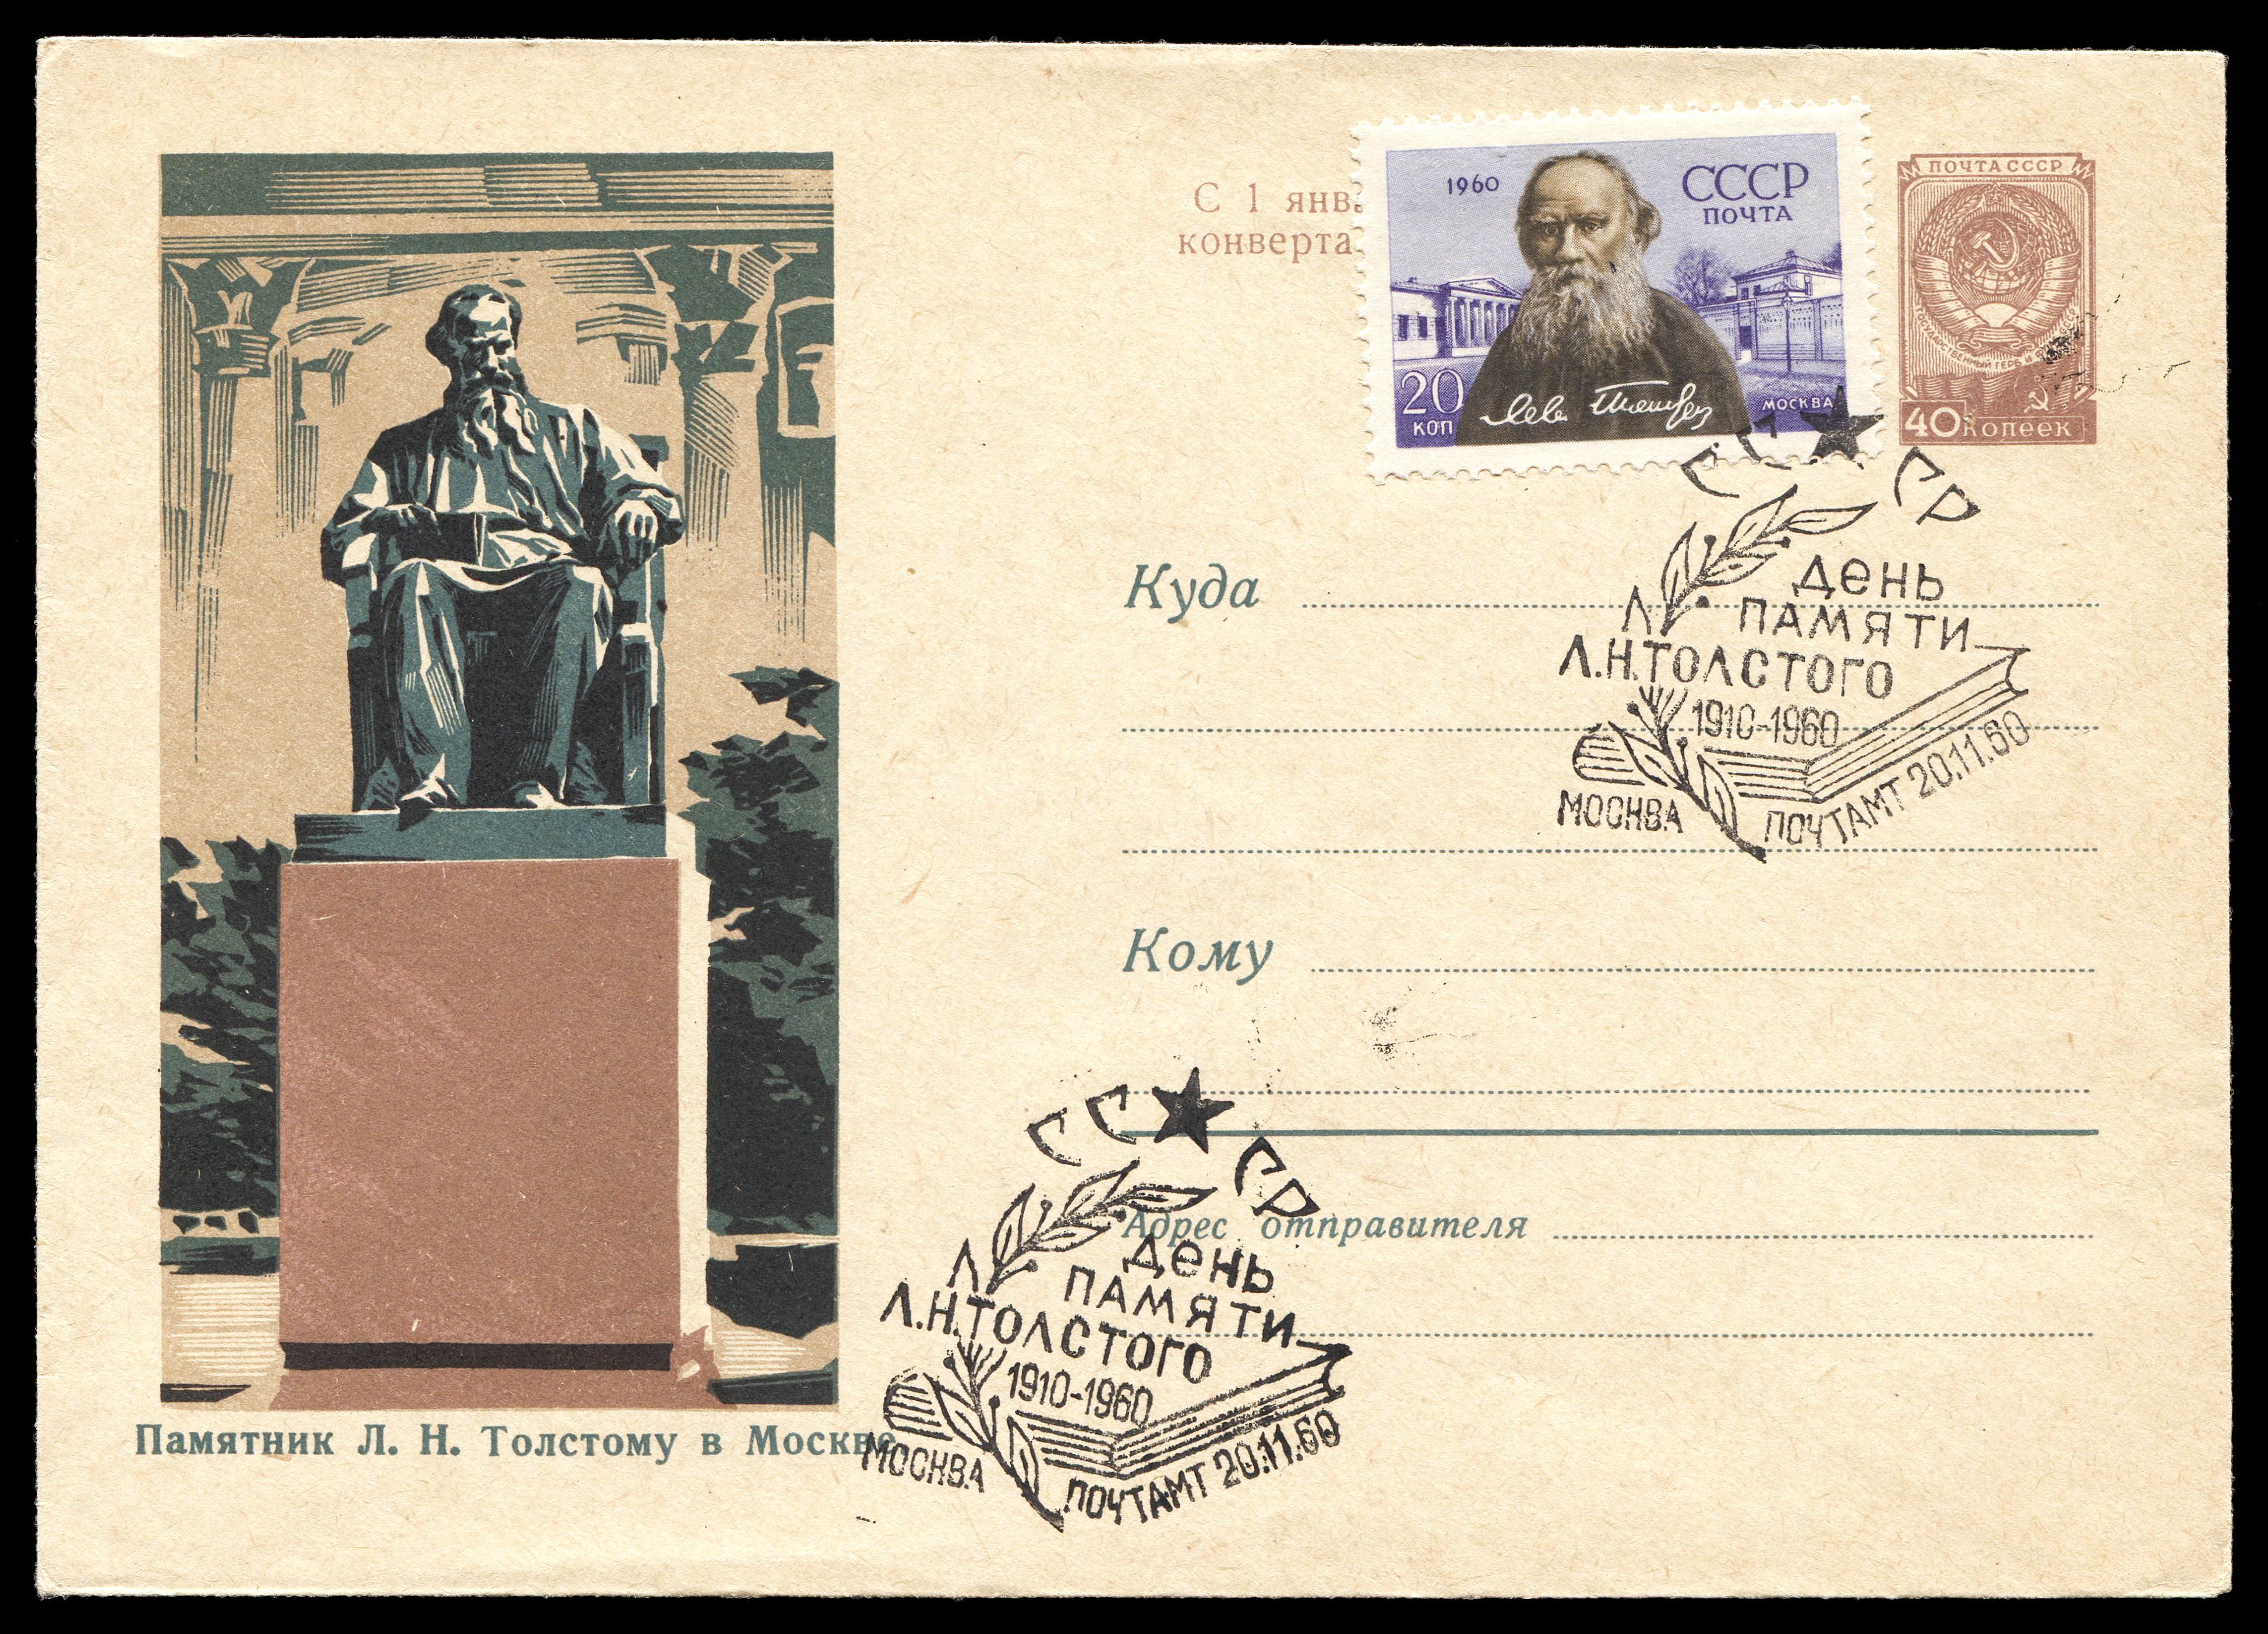 С 1 янв
конверта
1960
СССР
ПОЧТА
20
КОП
Лев Толстой
МОСКВА
ПОЧТА СССР
40 копеек
СССР
Куда
ДЕНЬ
ПАМЯТИ
Л.Н.ТОЛСТОГО
1910-1960
МОСКВА ПОЧТАМТ 20.11.60
Кому
СССР
Адрес отправителя
ДЕНЬ
ПАМЯТИ
Л.Н.ТОЛСТОГО
1910-1960
МОСКВА ПОЧТАМТ 20.11.60
Памятник Л. Н. Толстому в Москве